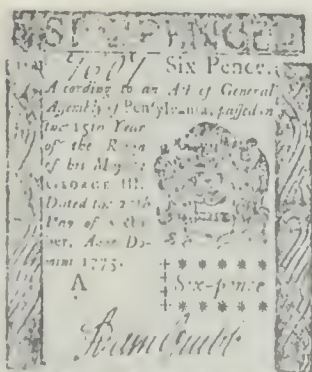 SIX PENCE
Six Pence.
According to an Act of General
Assembly of Pensylvania, passed in
the 15th Year
of the Reign
of his Majesty
GEORGE III.
Dated the
Day of
Anno Do-
mini 1775.
A
Six-pence